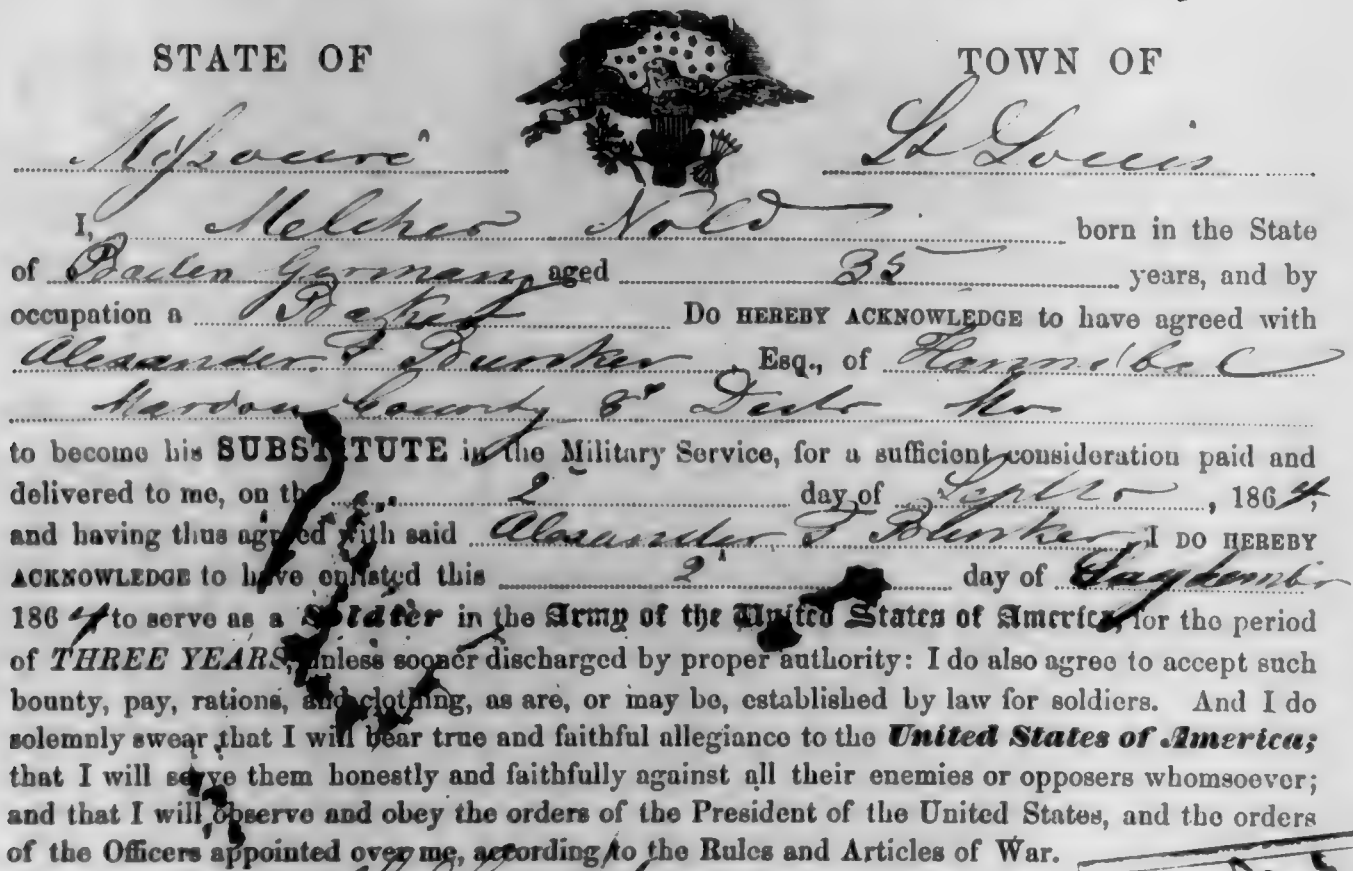 STATE OF TOWN OF
Missouri St Louis
I, Melcher Nold born in the State
of Baden Germany aged 35 years, and by
occupation a Baker DO HEREBY ACKNOWLEDGE to have agreed with
Alexander F Esq., of Hannibal
County 8" Mo
to become his SUBSTITUTE in the Military Service, for a sufficient consideration paid and
delivered to me, on the 2 day of , 1864,
and having thus agreed with said Alexander F I DO HEREBY
ACKNOWLEDGE to have enlisted this 2" day of
1864 to serve as a Soldier in the Army of the United States of America, for the period
of THREE YEARS, unless sooner discharged by proper authority: I do also agree to accept such
bounty, pay, rations, and clothing, as are, or may be, established by law for soldiers. And I do
solemnly swear that I will bear true and faithful allegiance to the United States of America;
that I will serve them honestly and faithfully against all their enemies or opposers whomsoever;
and that I will observe and obey the orders of the President of the United States, and the orders
of the Officers appointed over me, according to the Rules and Articles of War.